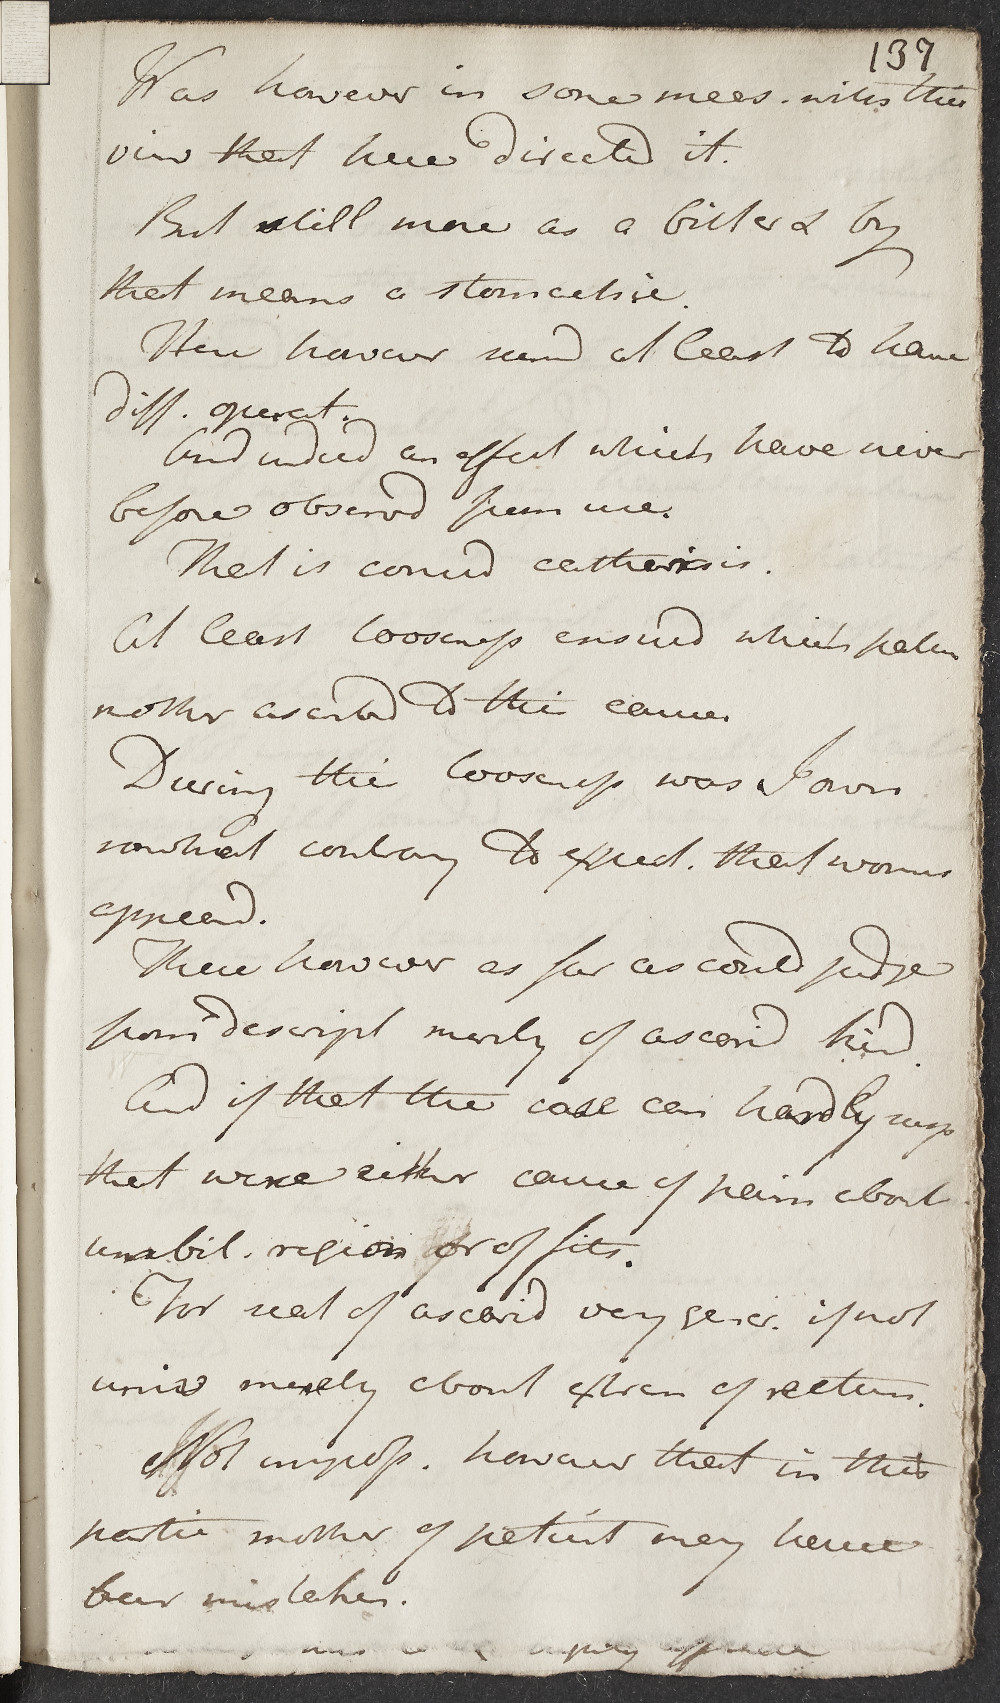 137
Was however in some meas. with this
view that here directed it.
But still more as a bitter & by
that means a stomachic.
Here however seemd at least to have
diff. operat.
And indeed an effect which have never
before observd from use.
That is coniud catharsis.
At least looseness ensued which patien
mother ascribd to this cause.
During this looseness was I own
somwhat contrary to expect. that worms
appeard.
These however as far as could judge
from descript merely of ascarid kind.
And if that the case can hardly supp
that were either cause of pains about
umbil. region or of fits.
For seat of ascarid very gener. if not
univ merely about extrem of rectum.
Not imposs. however that in this
partic mother of patient may have
been mistaken.